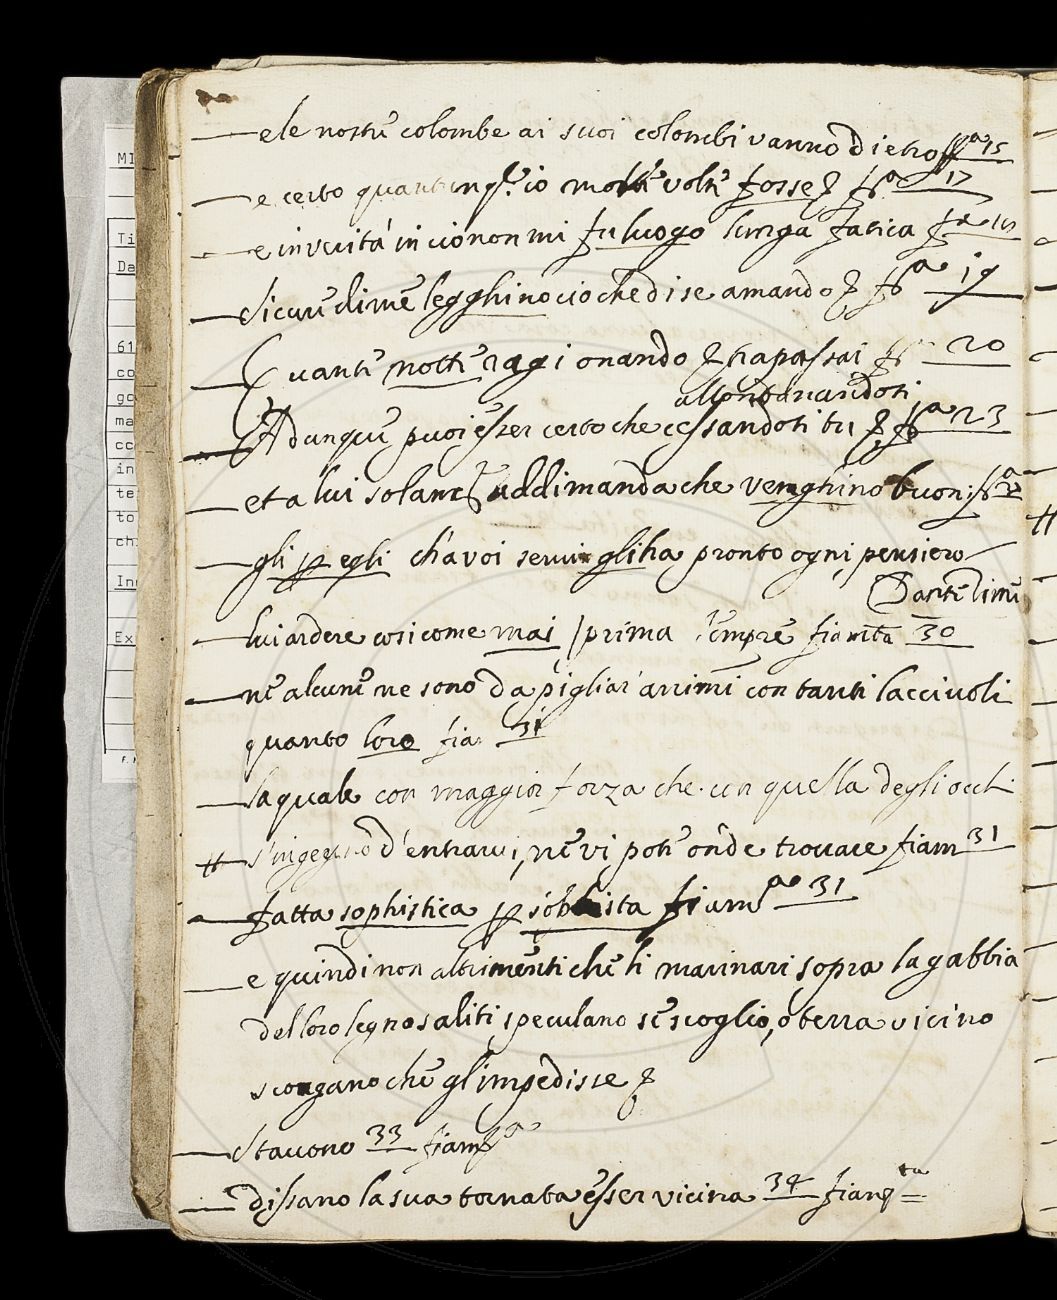 ele nostre colombe ai suoi colombi vanno dietro ffa 15
e certo quantunq. io molte volte fosse & ffa 17
e in verità in ciò non mi fu luogo lunga fatica fa 18
sicure di me legghino ciò che dise amando & ffa 19
Quante notte ragionando & trapassai ff 20
allontanandoti
Adunque puoi esser certo che cessandoti tu & ffa 23
et a lui solam addimanda che venghino buon: ffa
gli p egli ch'a voi servir gli ha pronto ogni pensiero
Dante rime
lui ardere così come mai prima sempre fiamta 30
ne alcune ne sono da pigliar' animi con tanti lacciuoli
quanto loro fia 31
la quale con maggior forza che con quella degli occhi
s'ingegnò d'entrarvi, ne vi pote onde trovare fiam 31
fatta sophistica p sobhista fiama 31
e quindi non altrimenti che li marinari sopra la gabbia
del loro legno saliti speculano se scoglio, o terra vicino
scorgano che gl'impedisse &
stavono 33 fiama
dissano la sua tornata esser vicina 34 fiamta